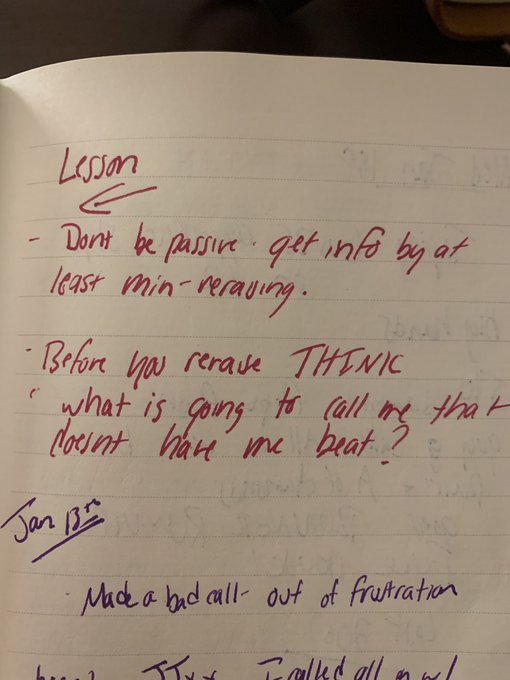 Lesson
- Dont be passive. get info by at
least min-reraving.
- Before you reraise THINK
" what is going to call me that
doesnt have me beat?
Jan 13th
- Made a bad call- out of frustration
JJxx I called all in w/